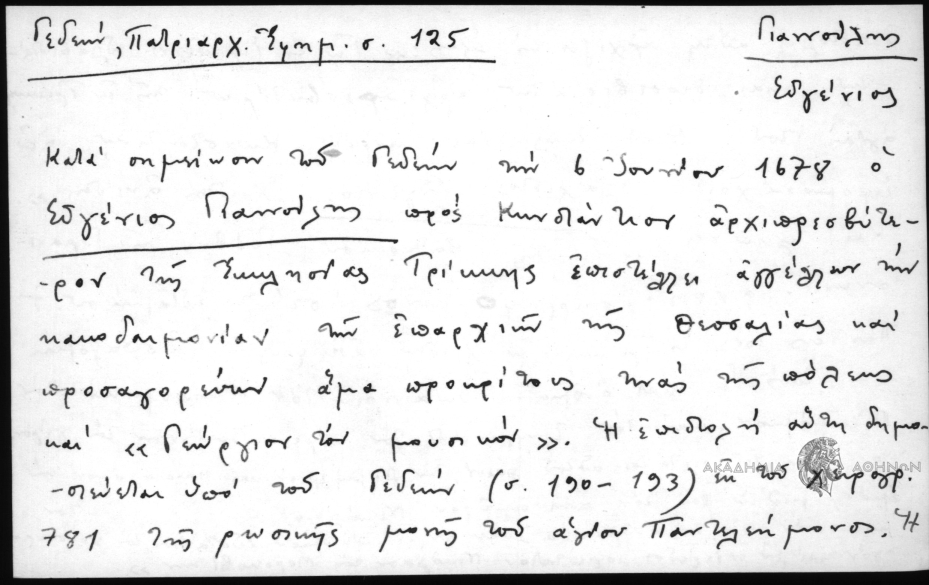 Γεδεών, Πατριαρχ. Ἐφημ. σ. 125
Γιαννούλης
Εὐγένιος
Κατά σημείωσιν τοῦ Γεδεών τήν 6 Ἰουνίου 1678 ὁ
Εὐγένιος Γιαννούλης πρός Κωνστάντιον ἀρχιπρεσβύτε-
-ρον τῆς Ἐκκλησίας Τρίκκης ἐπιστέλλει ἀγγέλλων τήν
κακοδαιμονίαν τῶν ἐπαρχιῶν τῆς Θεσσαλίας καί
προσαγορεύων ἅμα προκρίτους τινάς τῆς πόλεως
καί «Γεώργιον τόν μουσικόν». Ἡ ἐπιστολή αὕτη δημο-
-σιεύεται ὑπό τοῦ Γεδεών (σ. 190-193) ἐκ τοῦ χειρογρ.
ΑΚΑΔΗΜΙΑ ΑΘΗΝΩΝ
781 τῆς ρωσικῆς μονῆς τοῦ ἁγίου Παντελεήμονος. Ἡ